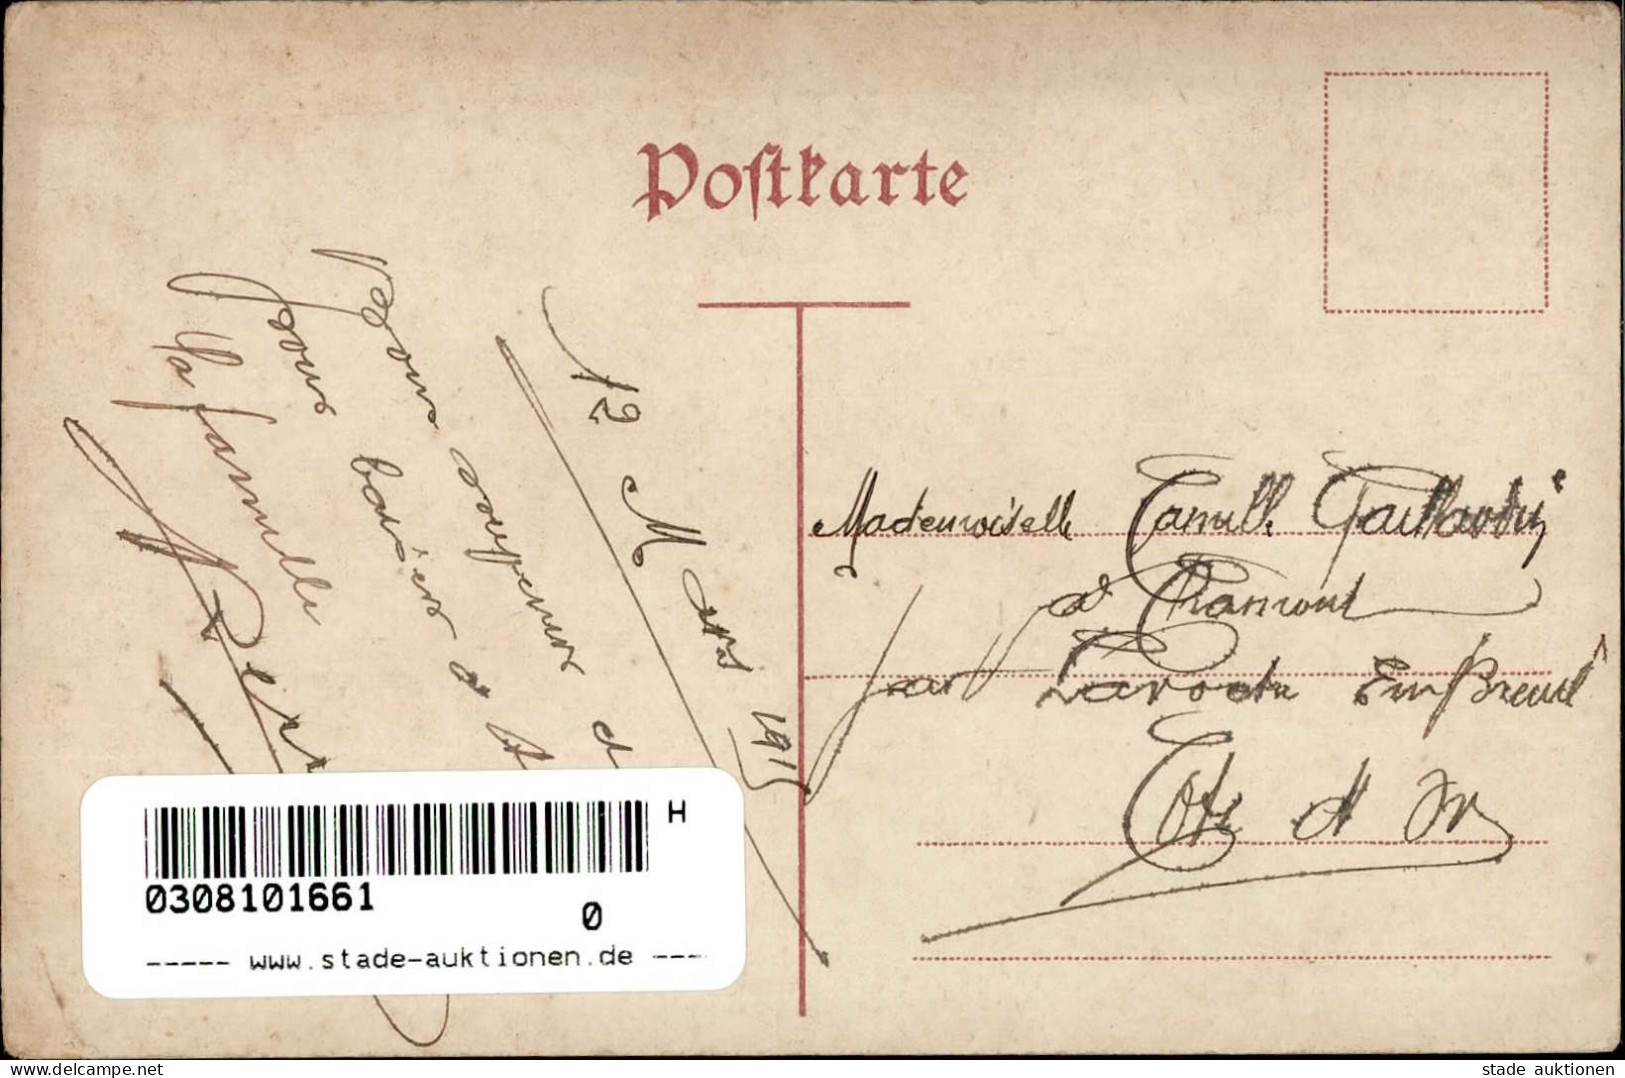 Postkarte
12 Mars 1915
Bons souvenirs
Bons baisers a
la famille
Mademoiselle Camille
a Chamont
par Laroche En Breuil
Cote d Or
H
0308101661
0
----- www.stade-auktionen.de ---
https://www.delcampe.net
stade auktionen